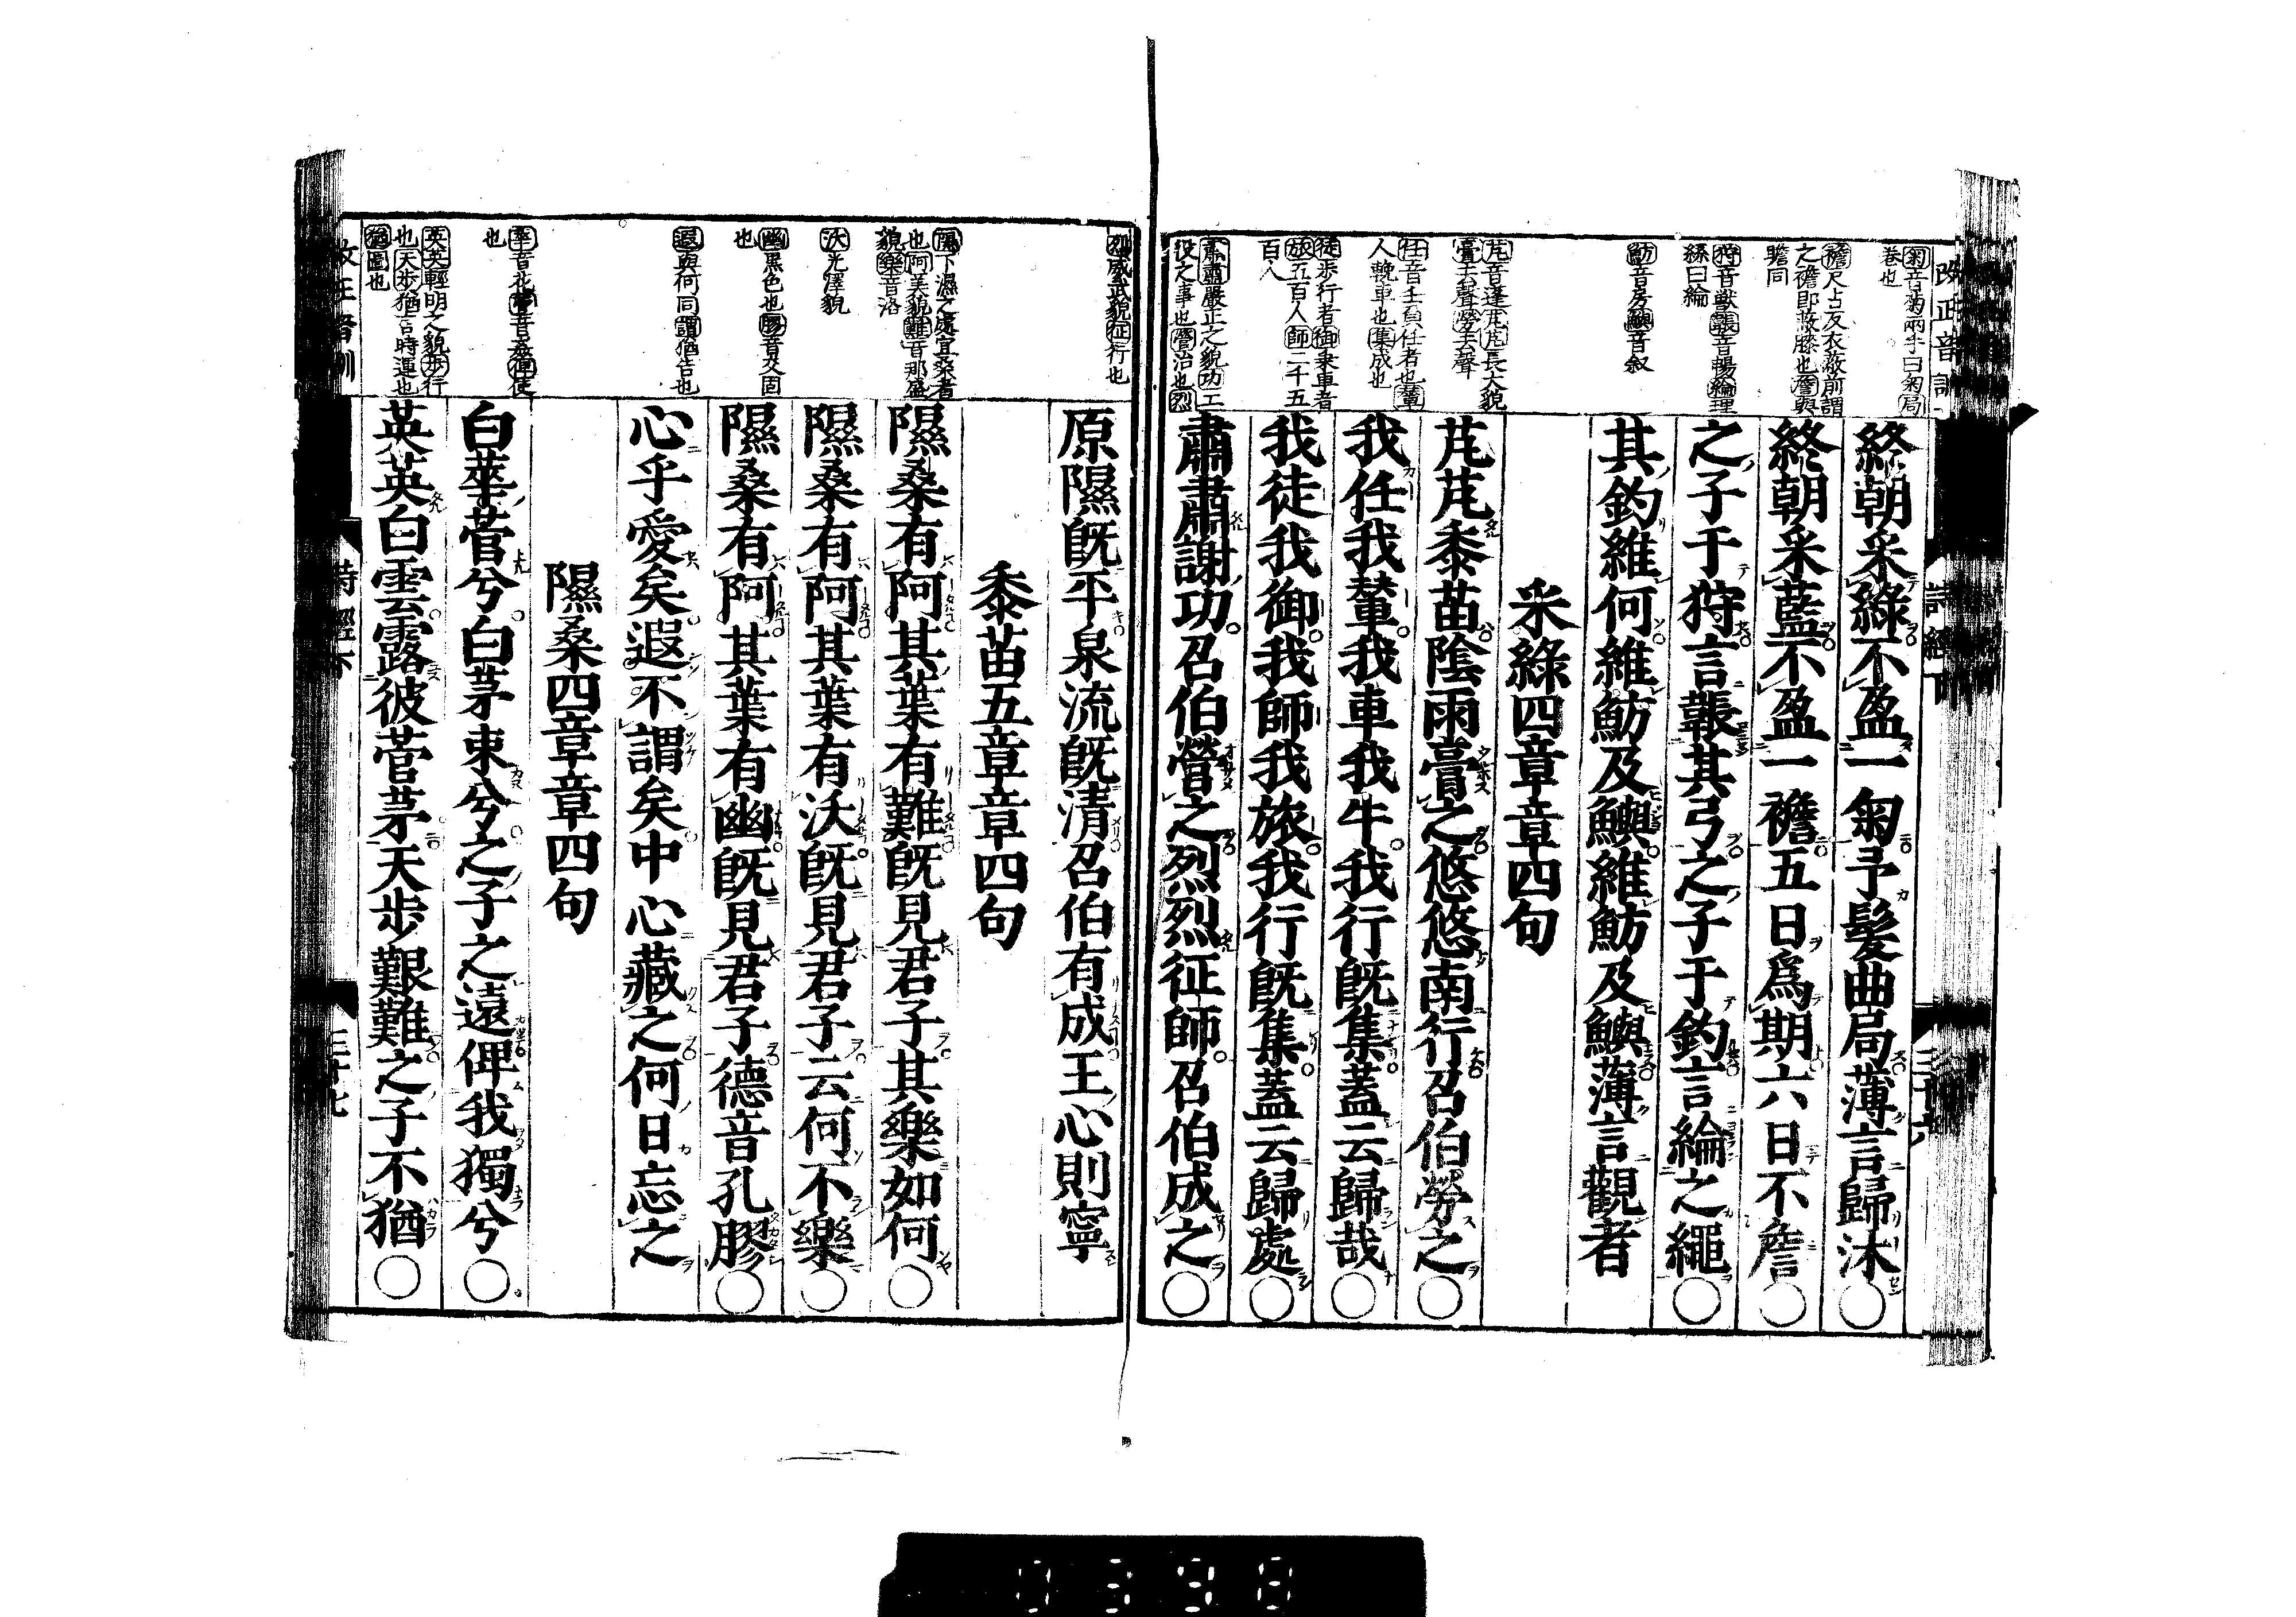 改正音訓
詩經下
三十六
匊音菊兩手曰匊局
卷也
襜尺占反衣蔽前謂
之襜即蔽膝也詹與
瞻同
狩音獸韔音暢綸理
絲曰綸
魴音房鱮音叙
芃音蓬芃芃長大貌
膏去聲勞去聲
任音壬負任者也輦
人輓車也集成也
徒步行者御乗車者
旅五百人師二千五
百人
肅肅嚴正之貌功工
役之事也營治也烈
終朝采綠不盈一匊予髮曲局薄言歸沐○
終朝采藍不盈一襜五日爲期六日不詹○
之子于狩言韔其弓之子于釣言綸之繩○
其釣維何維魴及鱮維魴及鱮薄言觀者
采綠四章章四句
芃芃黍苗陰雨膏之悠悠南行召伯勞之○
我任我輦我車我牛我行既集蓋云歸哉○
我徒我御我師我旅我行既集蓋云歸處○
肅肅謝功召伯營之烈烈征師召伯成之○
烈威武貌征行也
隰下濕之處宜桑者
也阿美貌難音那盛
貌樂音洛
沃光澤貌
幽黒色也膠音交固
也
遐與何同謂猶告也
華音花菅音姦俾使
也
英英輕明之貌步行
也天步猶言時運也
猶圖也
原隰既平泉流既清召伯有成王心則寧
黍苗五章章四句
隰桑有阿其葉有難既見君子其樂如何○
隰桑有阿其葉有沃既見君子云何不樂○
隰桑有阿其葉有幽既見君子德音孔膠○
心乎愛矣遐不謂矣中心藏之何日忘之
隰桑四章章四句
白華菅兮白茅束兮之子之遠俾我獨兮○
英英白雲露彼菅茅天步艱難之子不猶○
改正音訓
詩經下
三十七
0398